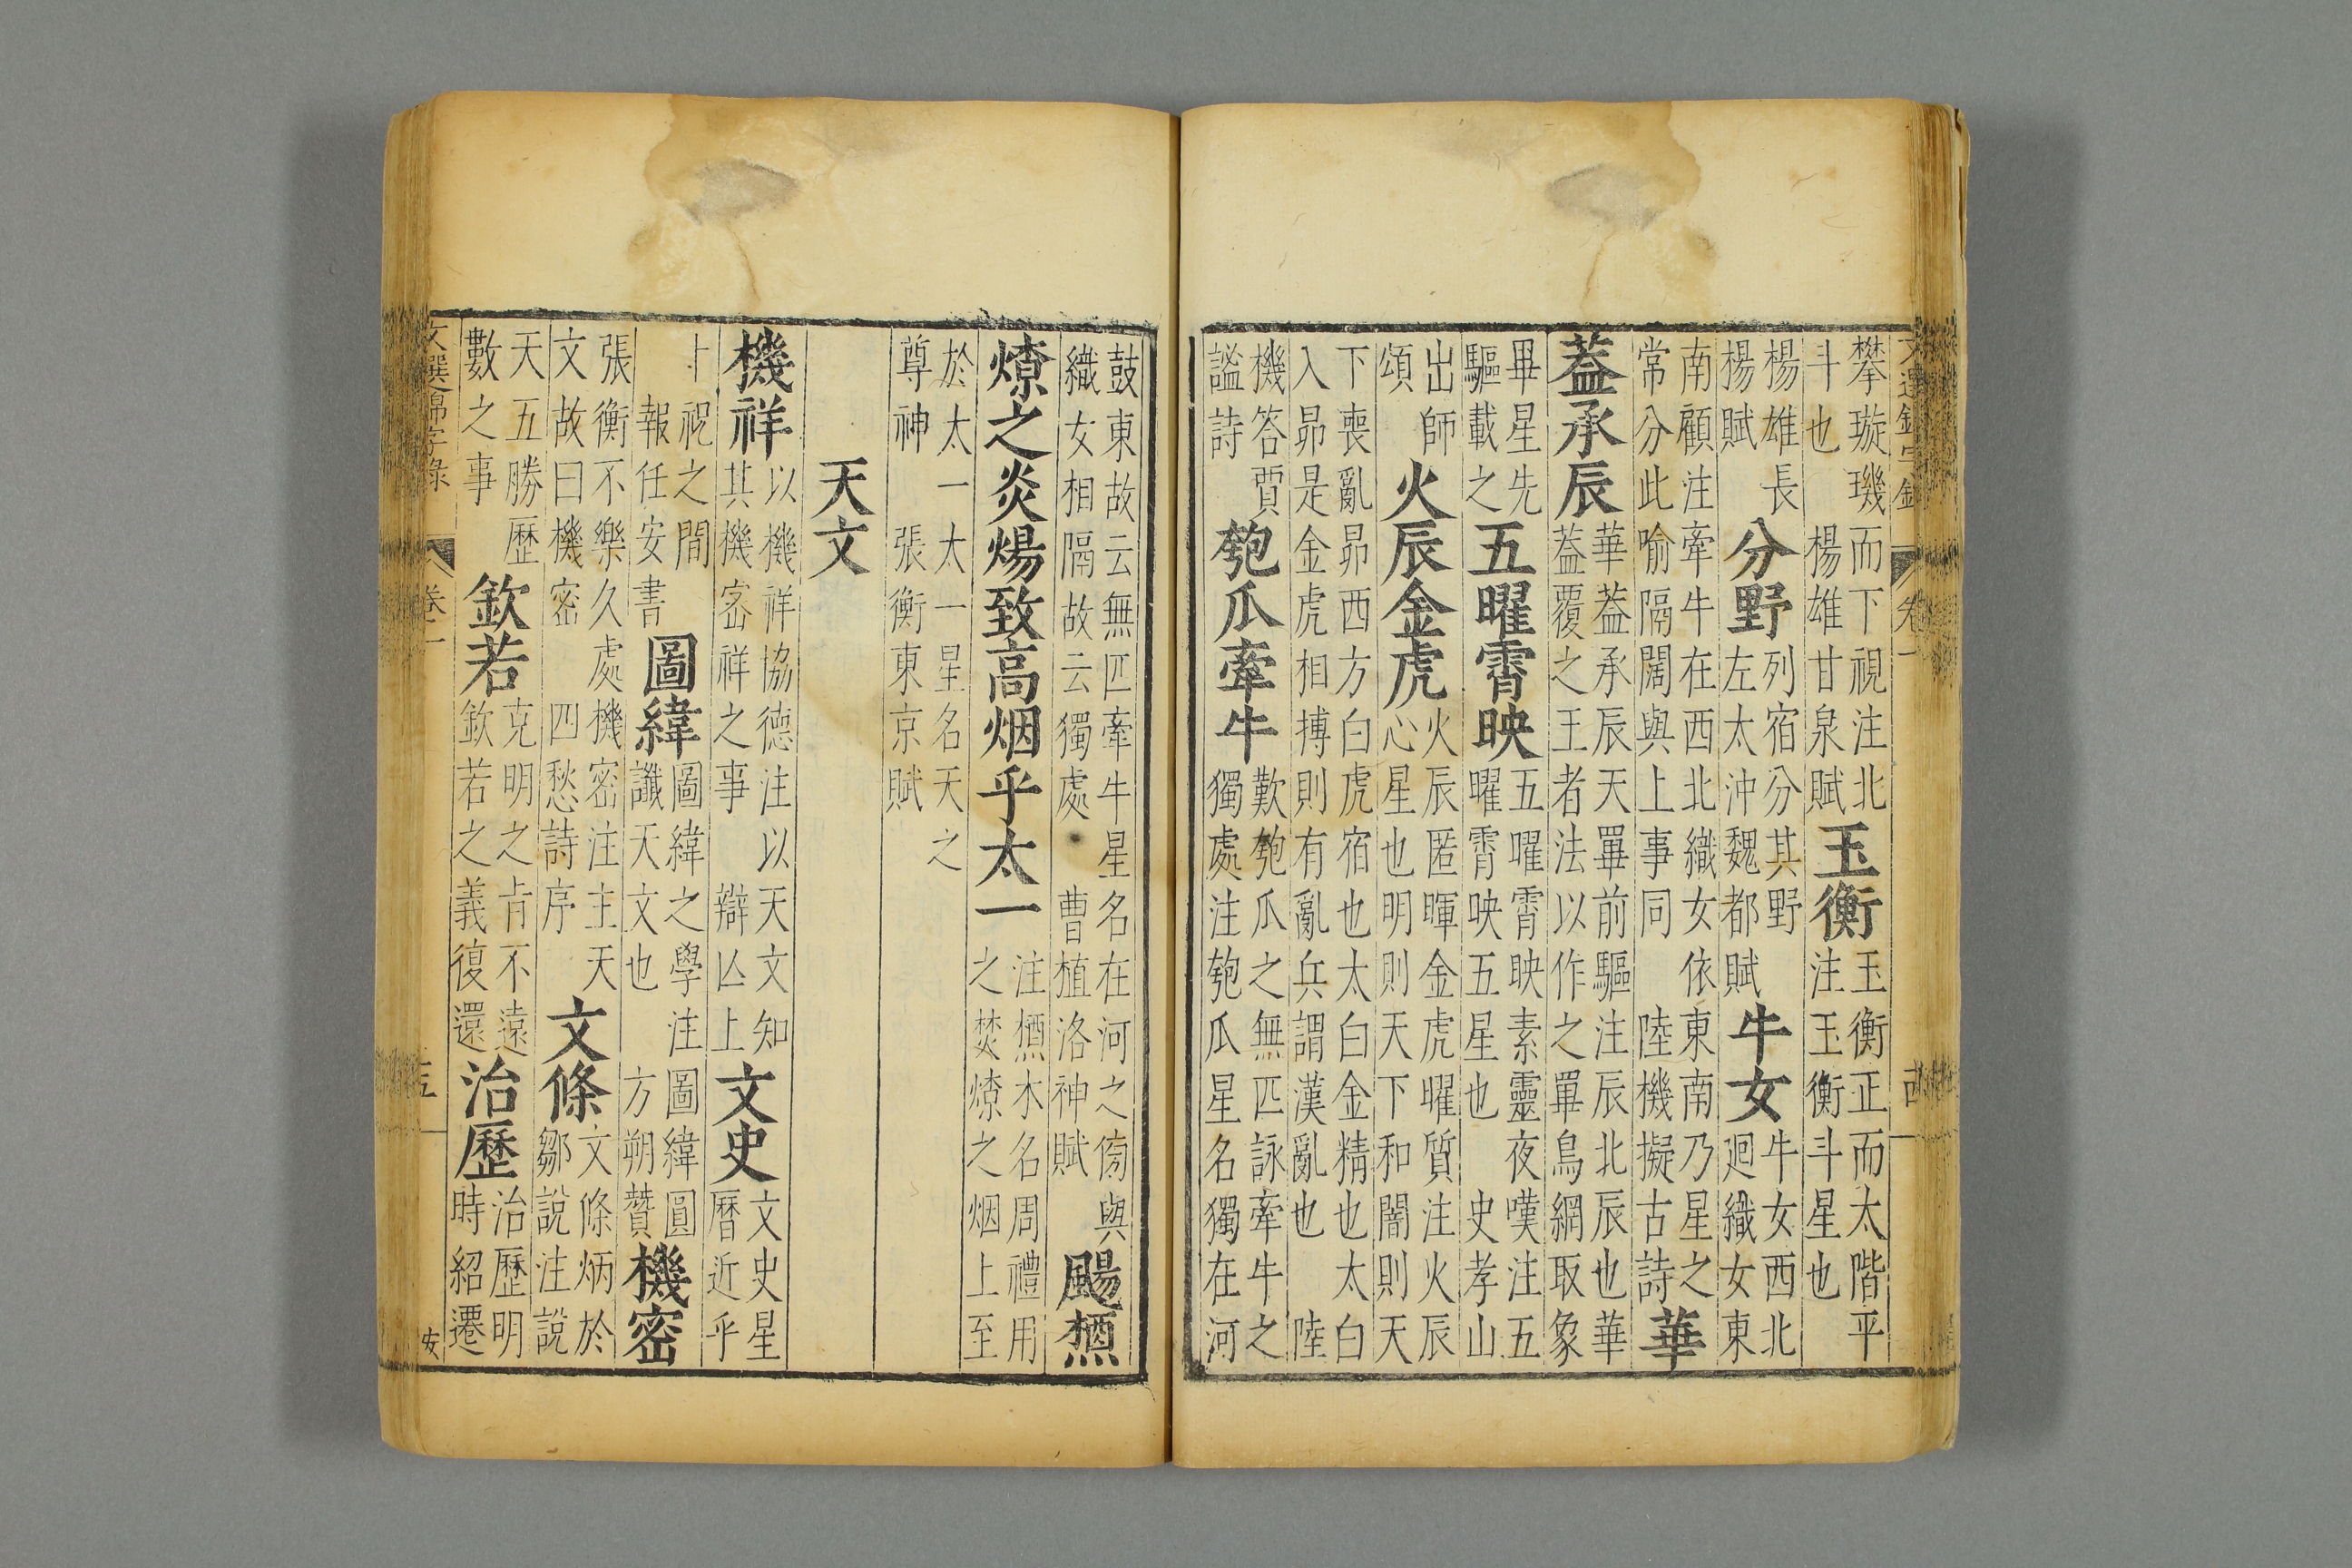 攀璇璣而下視注北
斗也　楊雄甘泉賦
玉衡
玉衡正而太階平
注玉衡斗星也
楊雄長
楊賦
分野
列宿分其野
左太沖魏都賦
牛女
牛女西北
廻織女東
南顧注牽牛在西北織女依東南乃星之
常分此喻隔闊與上事同　陸機擬古詩
華
蓋承辰
華蓋承辰天畢前驅注辰北辰也華
蓋覆之王者法以作之畢鳥網取象
畢星先
驅載之
五曜霄映
五曜霄映素靈夜嘆注五
曜霄映五星也　史孝山
出師
頌
火辰金虎
火辰匿暉金虎曜質注火辰
心星也明則天下和闇則天
下喪亂昴西方白虎宿也太白金精也太白
入昴是金虎相搏則有亂兵謂漢亂也　陸
機答賈
謐詩
匏瓜牽牛
歎匏瓜之無匹詠牽牛之
獨處注匏瓜星名獨在河
鼓東故云無匹牽牛星名在河之傍與
織女相隔故云獨處　曹植洛神賦
颺槱
燎之炎煬致高烟乎太一
注槱木名周禮用
之焚燎之烟上至
於太一太一星名天之
尊神　張衡東京賦
天文
機祥
以機祥協德注以天文知
其機密祥之事　辯亾上
文史
文史星
曆近乎
卜祝之間
報任安書
圖緯
圖緯之學注圖緯圓
讖天文也　方朔贊
機密
張衡不樂久處機密注主天
文故曰機密　四愁詩序
文條
文條炳於
鄒說注說
天五勝歷
數之事
欽若
克明之旨不遠
欽若之義復還
治歷
治歷明
時紹遷
文選錦字錄
安